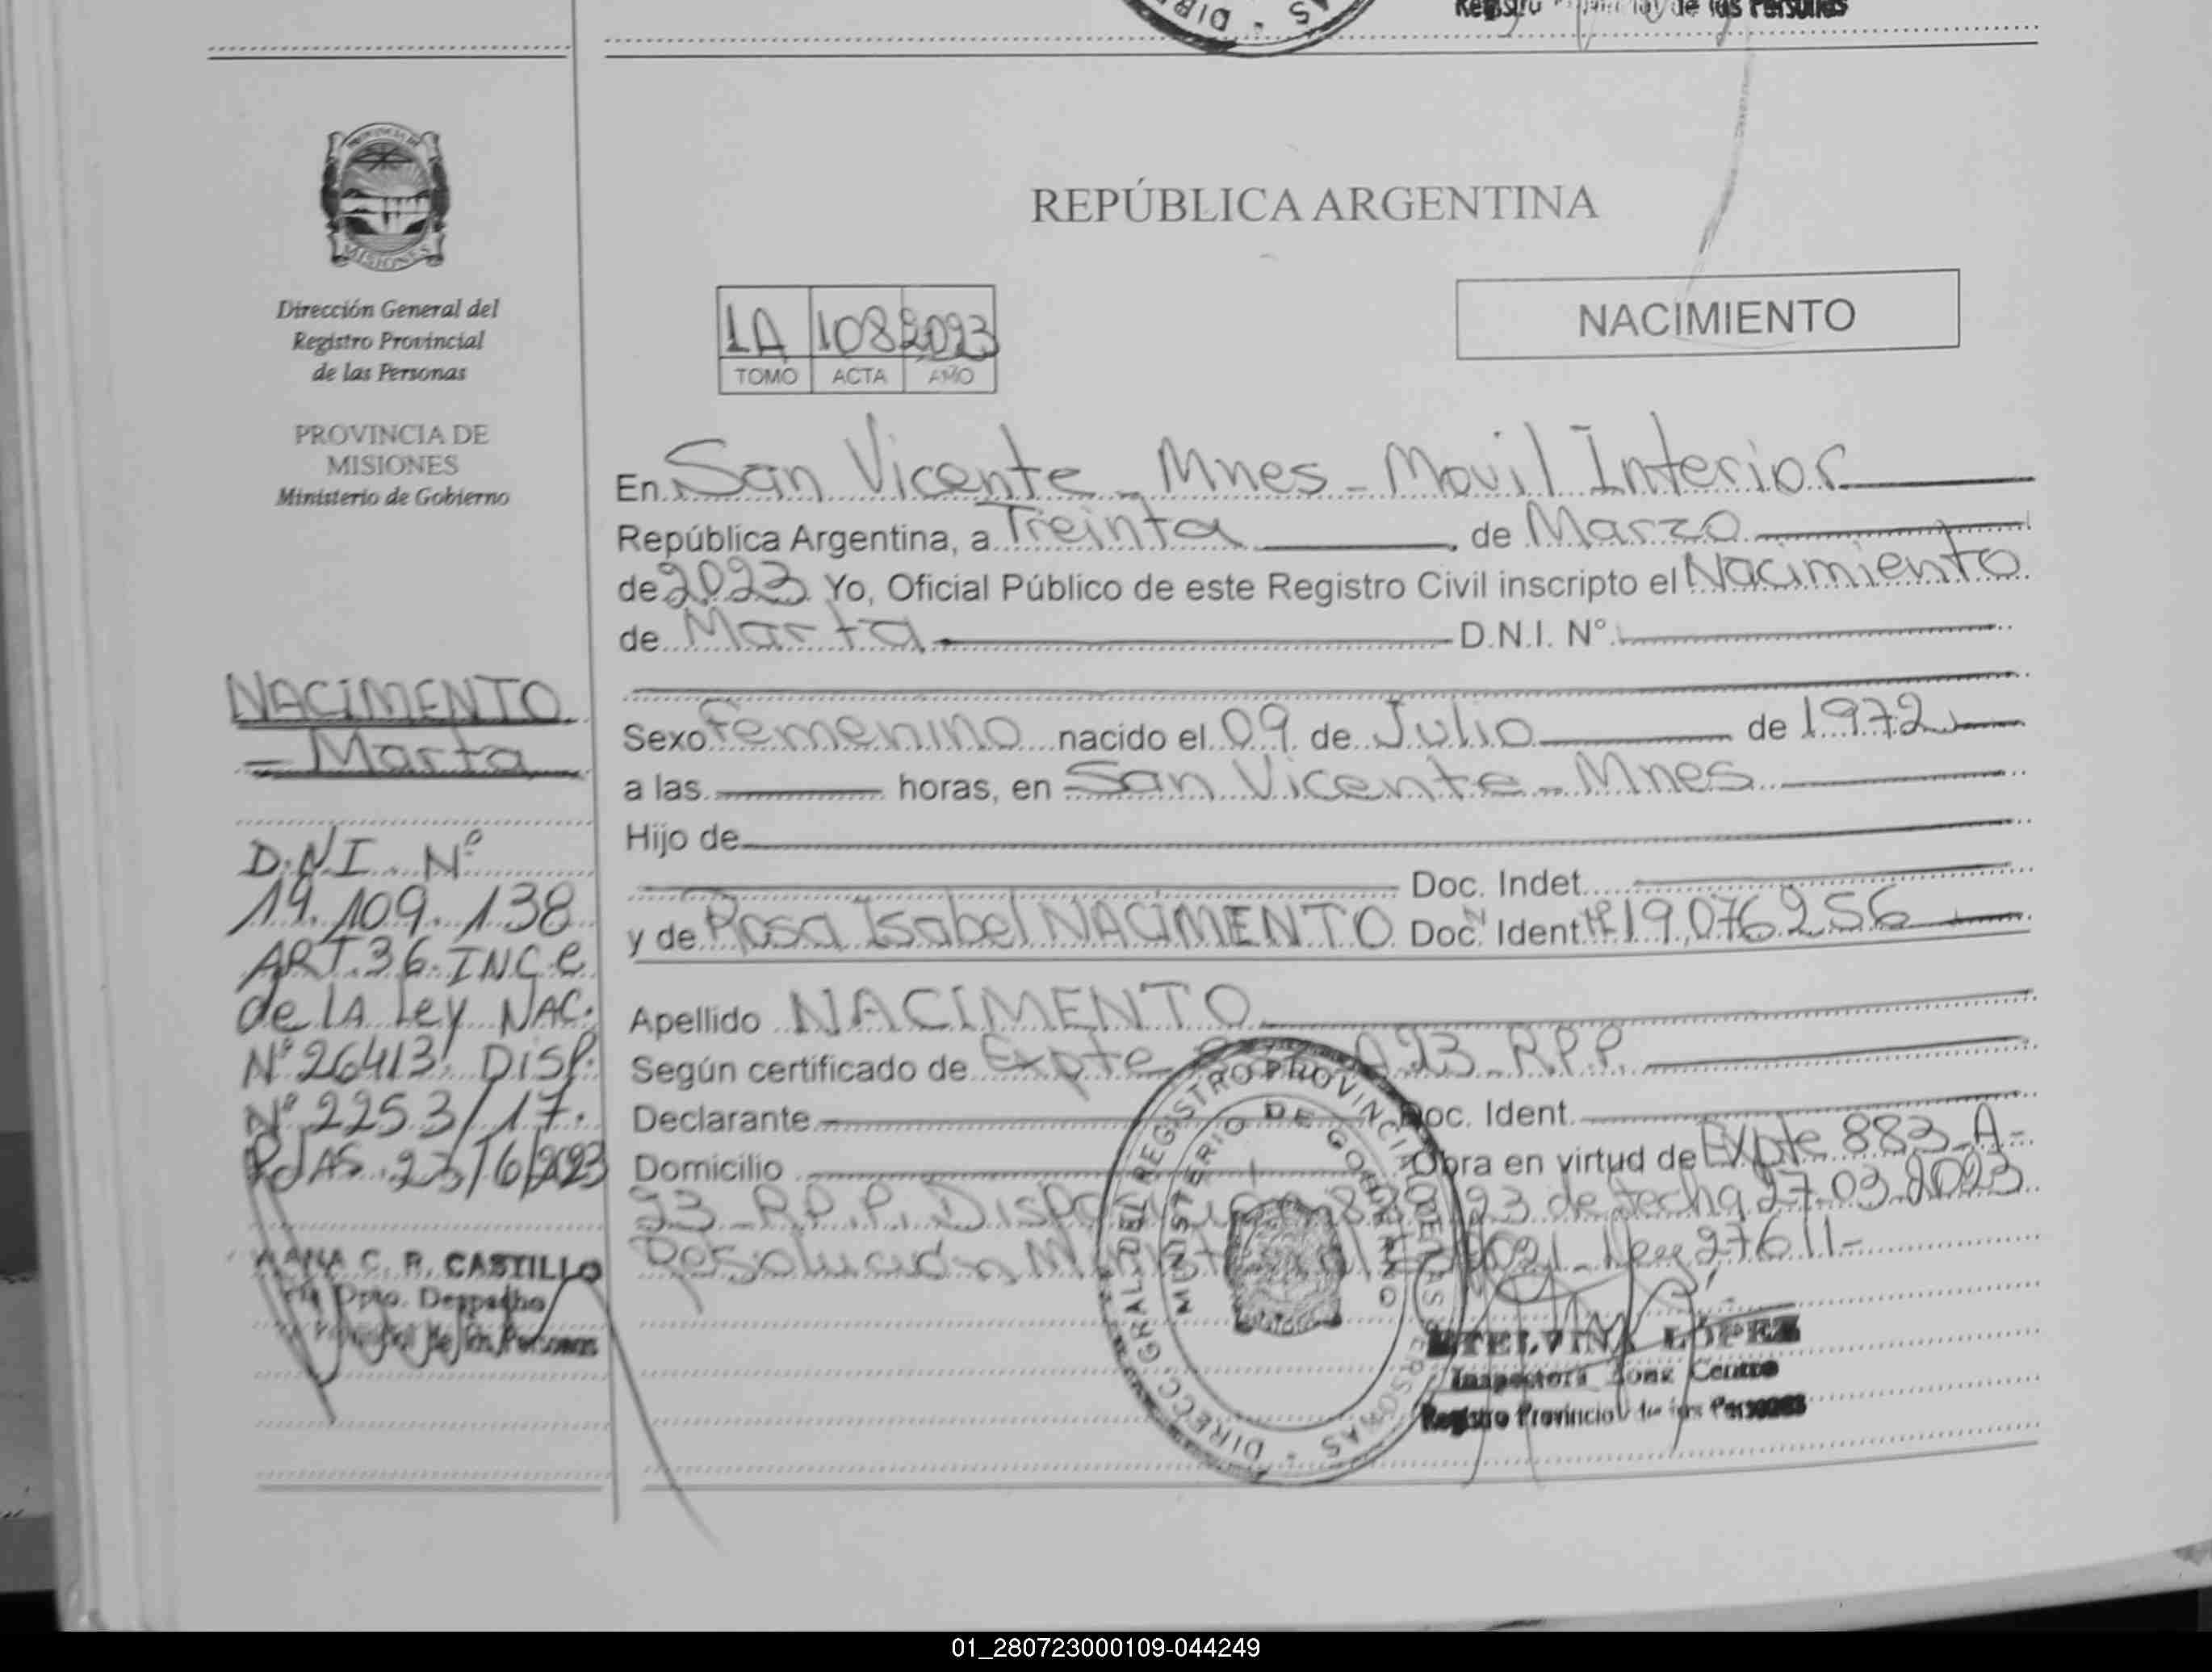 Registro de las Personas
PROVINCIA DE
MISIONES
Dirección General del
Registro Provincial
de las Personas
PROVINCIA DE
MISIONES
Ministerio de Gobierno
NACIMENTO
Marta
D.N.I. Nº
19.109.138
ART.36.INC.e
de LA Ley NAC.
Nº26413. DISP.
Nº 2253/17.
PdAS. 23/6/2023
C. R. CASTILLO
Dpto. Despacho
Provincial de las Personas
REPÚBLICA ARGENTINA
1A 108 2023
TOMO ACTA AÑO
NACIMIENTO
En San Vicente - Mnes - Movil Interior
República Argentina, a Treinta, de Marzo
de 2023 Yo, Oficial Público de este Registro Civil inscripto el Nacimiento
de Marta D.N.I. N°
Sexo Femenino nacido el 09 de Julio de 1972
a las horas, en San Vicente - Mnes
Hijo de
Doc. Indet.
y de Rosa Isabel NACIMENTO Doc. Ident Nº 19.076256
Apellido NACIMENTO
Según certificado de Expte A23 - R.P.P.
Declarante Doc. Ident.
Domicilio Obra en virtud de Expte 883-A-
23 - R.P.P. Disposición 23 de fecha 27-03-2023
Resolución Ministerial 2021 - Ley 27611-
DIRECC. GRAL. DEL REGISTRO PROVINCIAL DE LAS PERSONAS
MINISTERIO DE GOBIERNO
ETELVINA LÓPEZ
Inspectora Zona Centro
Registro Provincial de las Personas
01_280723000109-044249